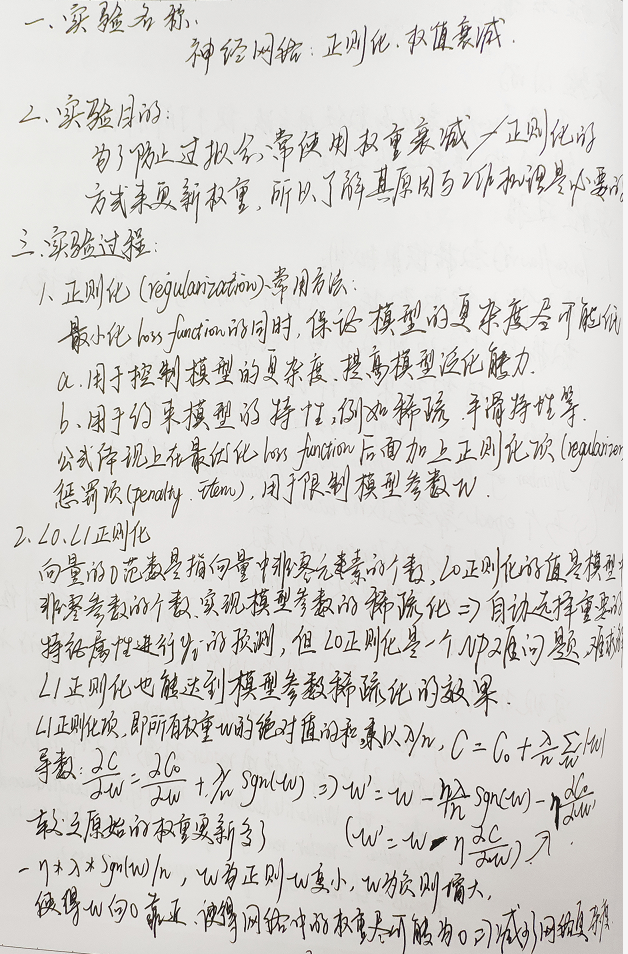 一、实验名称:
神经网络:正则化、权值衰减.
二、实验目的:
为了防止过拟合,常使用权重衰减/正则化的
方式来更新权重,所以了解其原因与工作机理是必要的。
三、实验过程:
1、正则化(regularization)、常用方法:
最小化loss function的同时,保证模型的复杂度尽可能低
a.用于控制模型的复杂度、提高模型泛化能力.
b、用于约束模型的特性,例如稀疏、平滑特性等.
公式体现上在最优化loss function后面加上正则化项(regularizer
惩罚项(penalty item),用于限制模型参数w.
2、L0、L1正则化
向量的0范数是指向量中非零元素的个数,L0正则化的值是模型中
非零参数的个数、实现模型参数的稀疏化⇒自动选择重要的
特征属性进行yi的预测,但L0正则化是一个NP难问题,难求解
L1正则化也能达到模型参数稀疏化的效果.
L1正则化项,即所有权重w的绝对值的和乘以λ/n, C = C₀ + λ/n ∑w |w|
导数: ∂C/∂w = ∂C₀/∂w + λ/n sgn(w) ⇒ w' = w - ηλ/n sgn(w) - η ∂C₀/∂w
较之原始的权重更新多了 (w' = w - η ∂C/∂w)
- η * λ * sgn(w)/n , w为正则w变小, w为负则增大,
使得w向0靠近、使得网络中的权重尽可能为0⇒减少网络复杂度